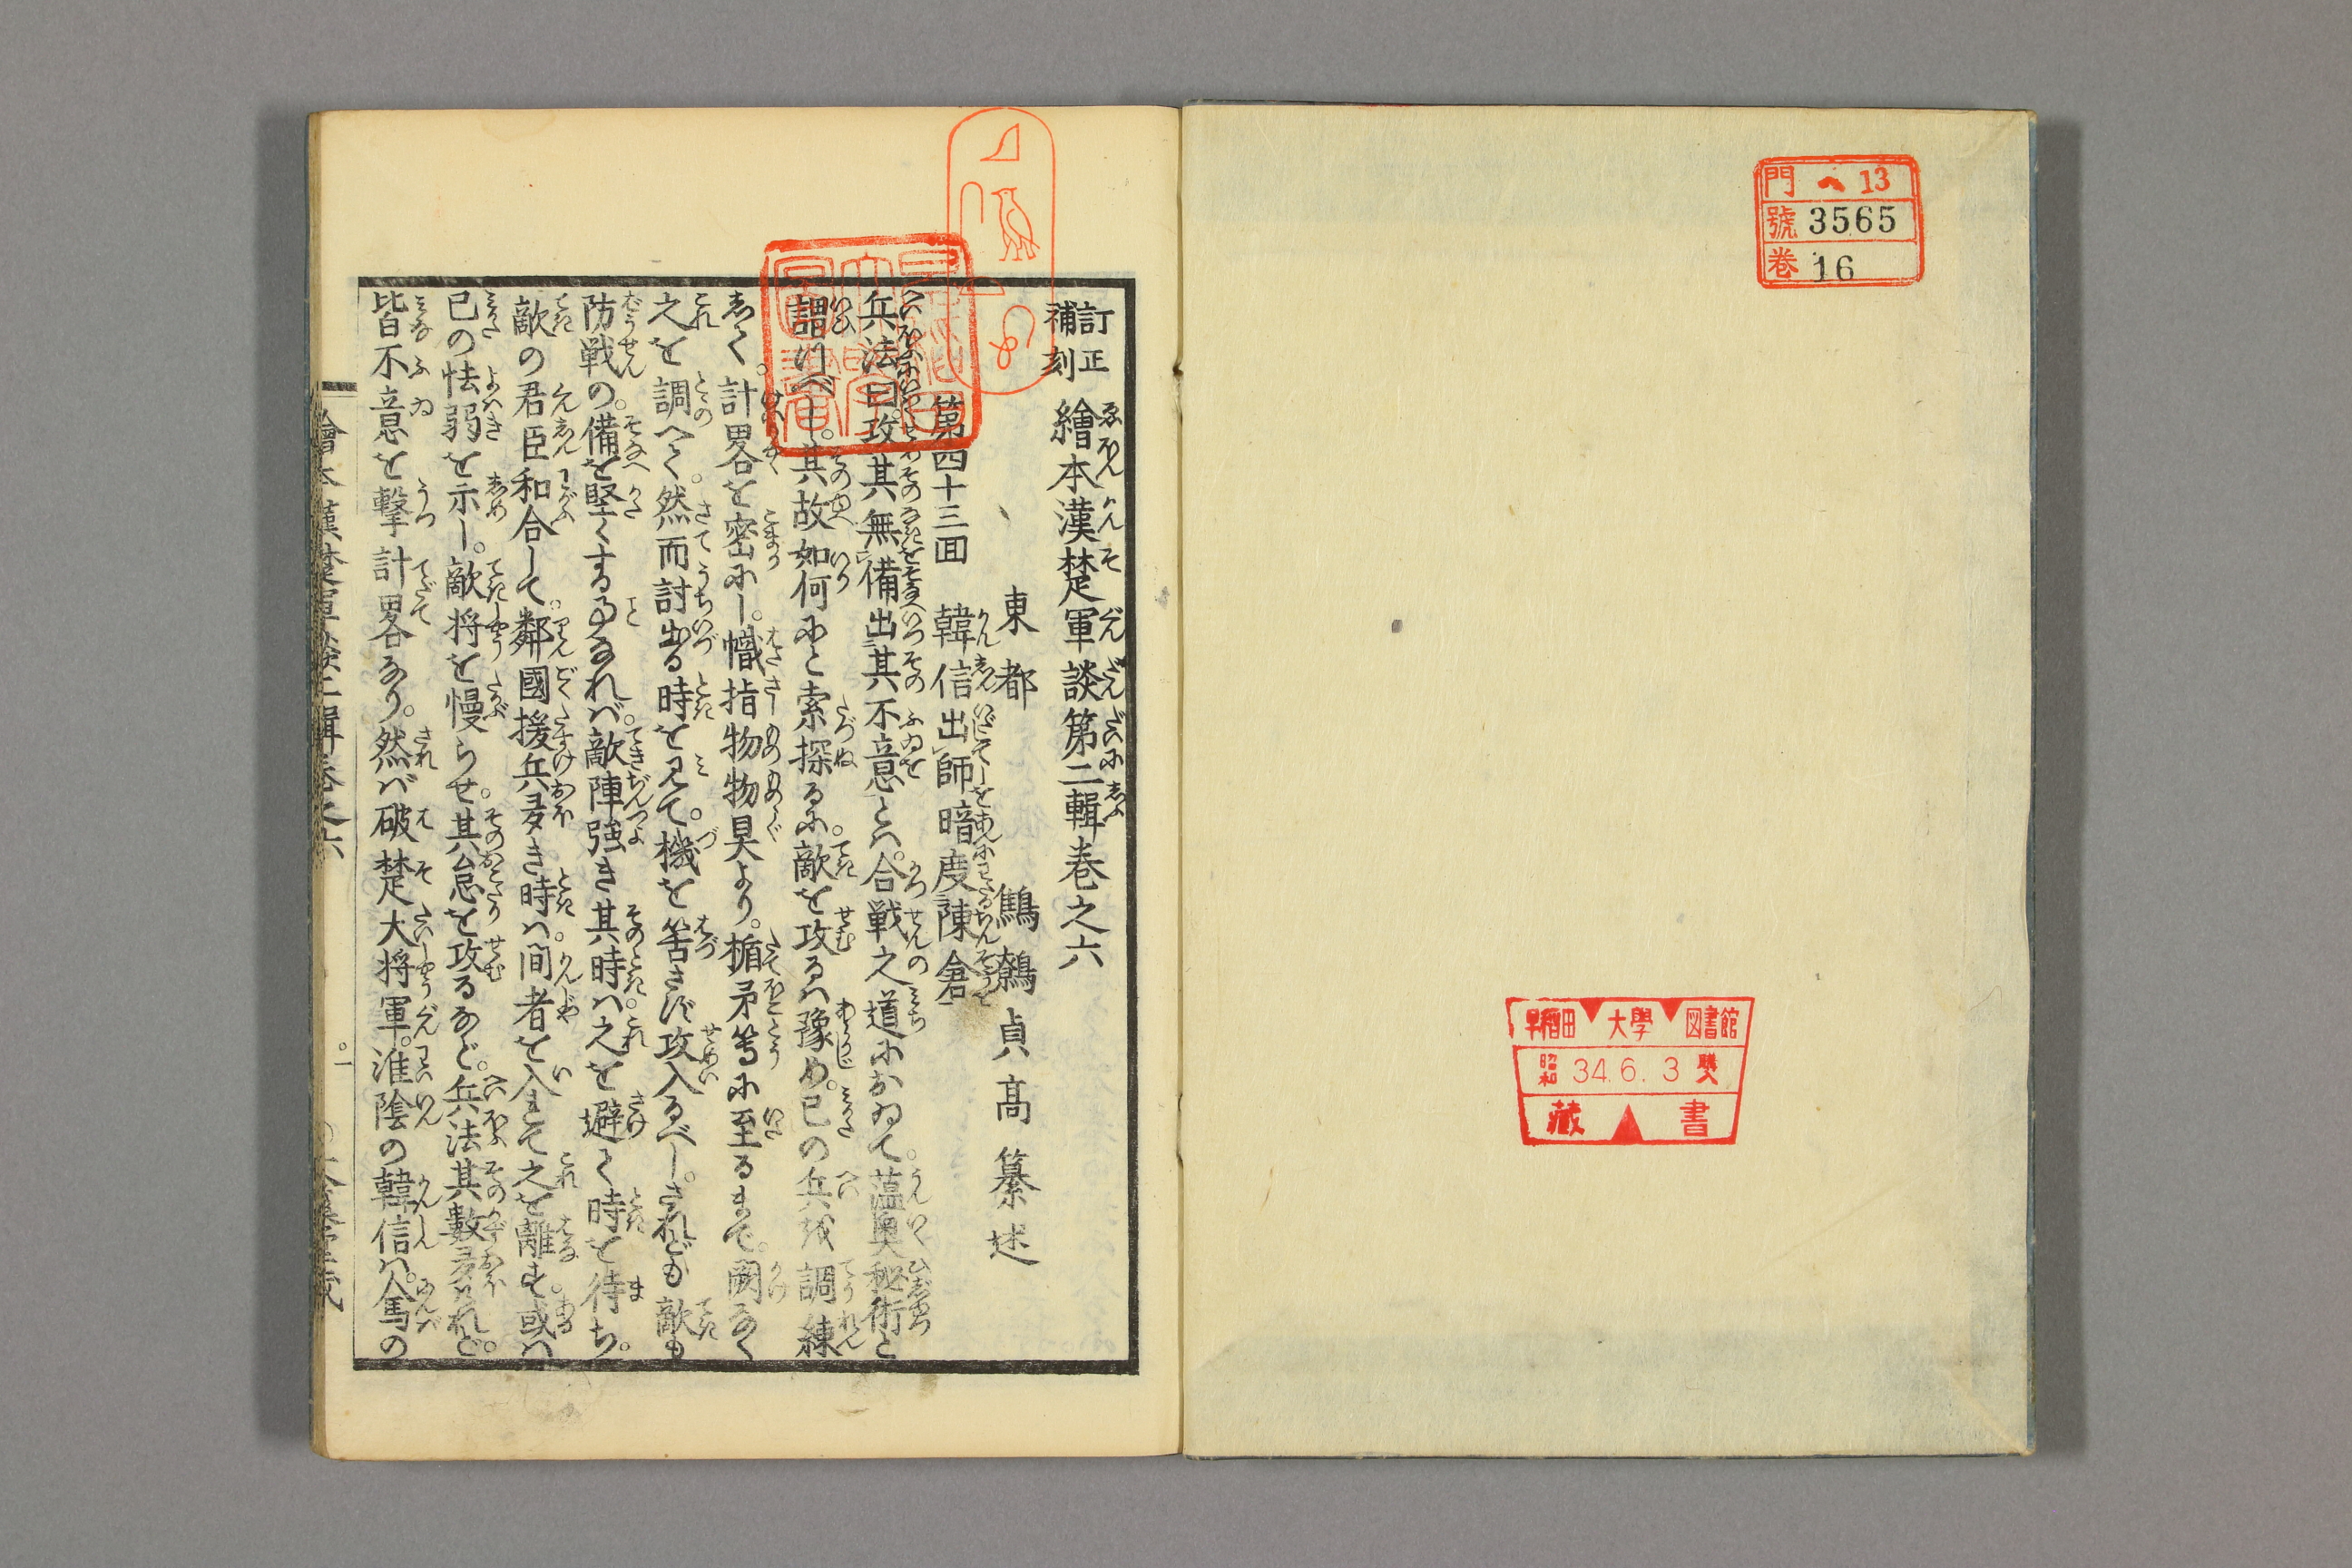 門 ヘ 13
號 3565
卷 16
早稲田 大學 図書館
昭和 34.6.3 購入
藏書
訂正補刻 繪本漢楚軍談第二輯卷之六
東都 鶴鷯貞高纂述
第四十三囬 韓信出師暗度陳倉
兵法曰攻其無備出其不意とハ。合戦之道において。薀奥秘術と
謂つべし。其故如何にと索探るに。敵を攻るハ豫め。已の兵を調練
しく。計畧を密にし。幟指物物具より。楯矛等に至るまで。闕なく
之を調へて。然而討出る時を見て。機を筈さず攻入るべし。されども敵も
防戦の。備を堅くする事なれバ。敵陣強き其時ハ。之を避て時を待ち。
敵の君臣和合して。鄰國援兵多き時ハ。間者を入れて之を離す。或ハ
已の怯弱を示し。敵将を慢らせ。其怠を攻るなど。兵法其數多けれど。
皆不意を擊計畧なり。然バ破楚大将軍。淮陰の韓信ハ。人馬の
繪本漢楚軍談二輯卷之六 一